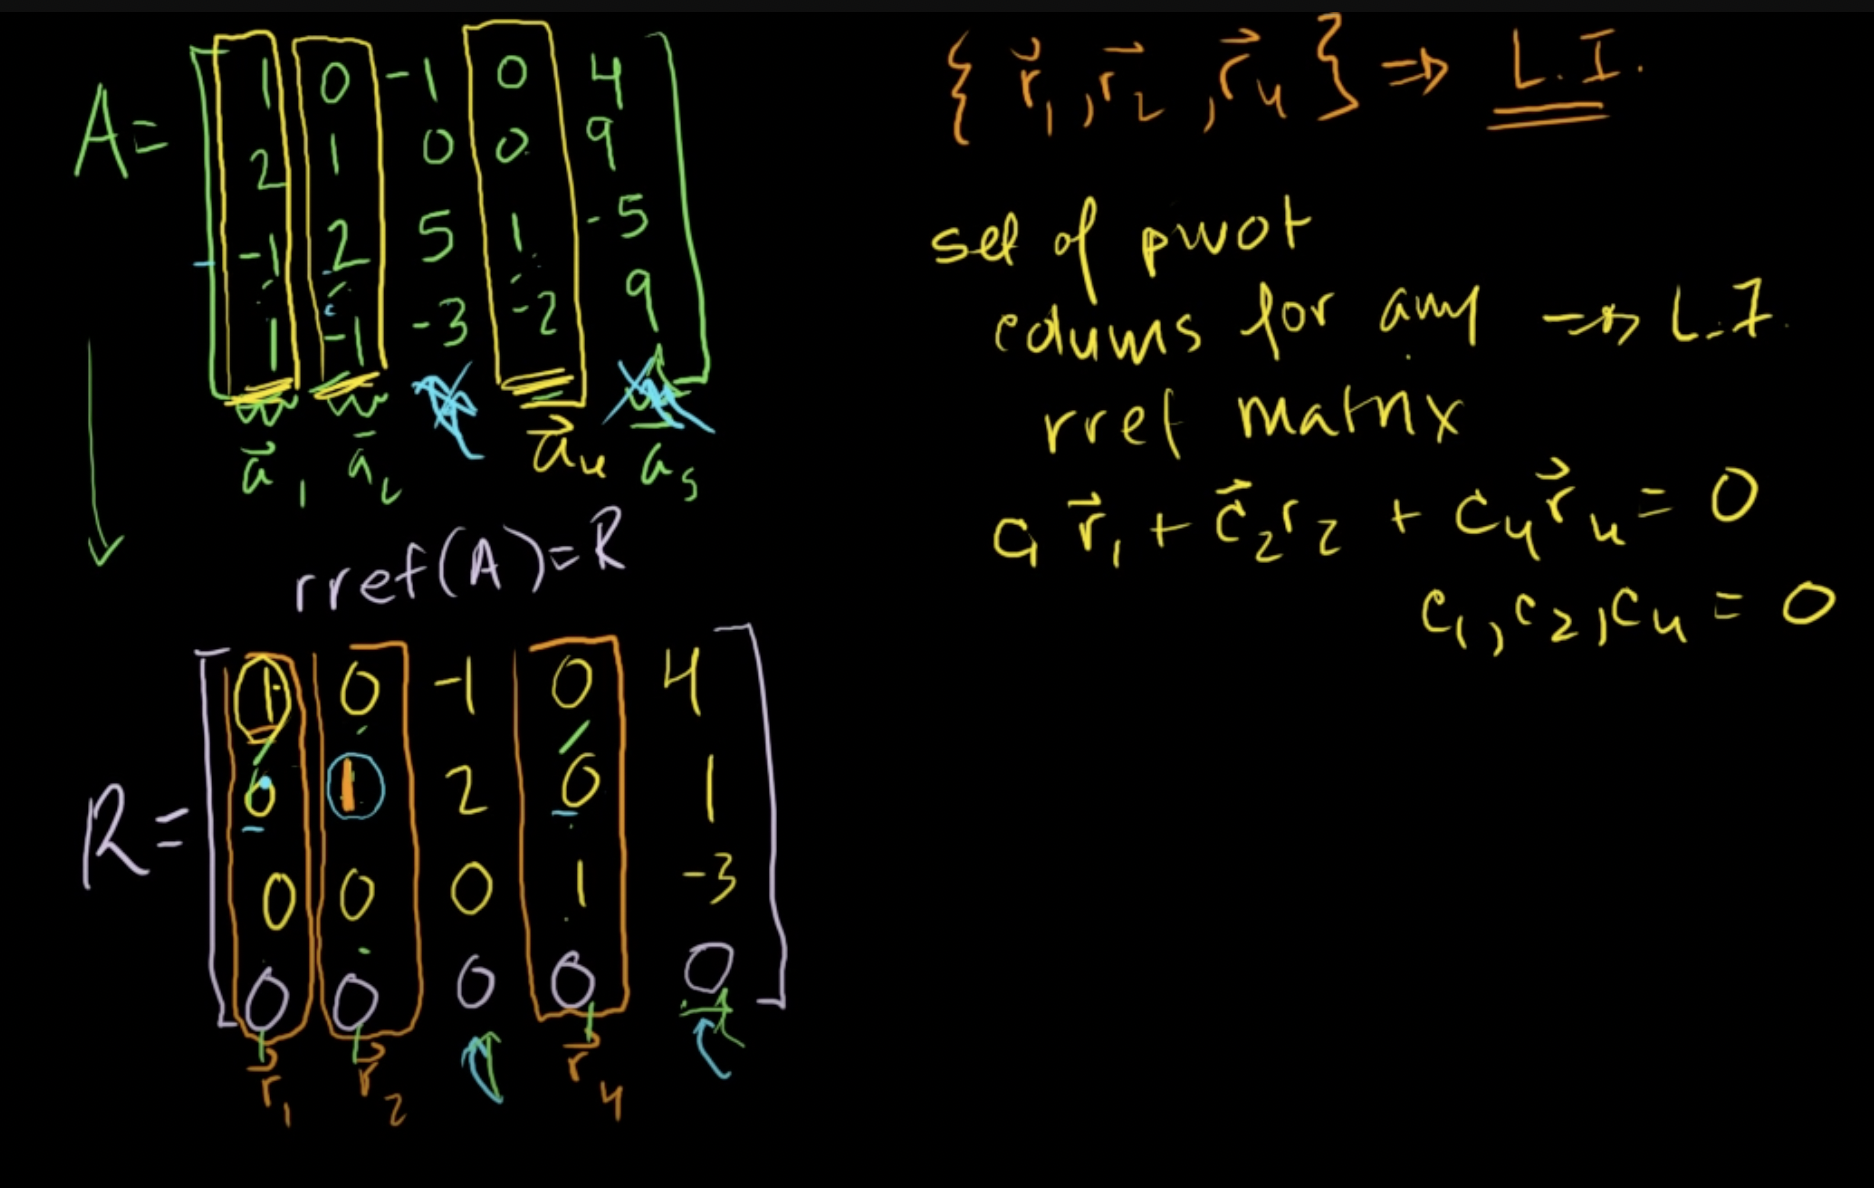 A= 1 0 -1 0 4
2 1 0 0 9
-1 2 5 1 -5
1 -1 -3 -2 9
a⃗1 a⃗2 a⃗4 a⃗5
rref(A)=R
R= 1 0 -1 0 4
0 1 2 0 1
0 0 0 1 -3
0 0 0 0 0
r⃗1 r⃗2 r⃗4
{ r⃗1, r⃗2, r⃗4 } ⇒ L.I.
set of pivot
colums for any ⇒ L.I.
rref matrix
c1 r⃗1 + c⃗2 r2 + c4 r⃗4 = 0
c1, c2, c4 = 0